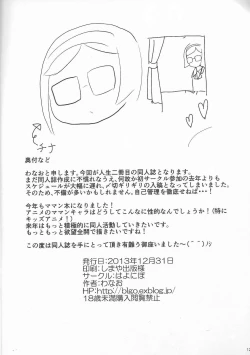 モチナ
奥付など
わなおと申します。今回が人生二冊目の同人誌となります。
まだ同人誌作成に不慣れなうえ、何故か初サークル参加の去年よりも
スケジュールが大幅に遅れ、〆切ギリギリの入稿となってしまいました。
そのため、不備が多いかもしれません。自己管理を徹底せねば・・・！
今年もママン本になりました！
アニメのママンキャラはどうしてこんなに性的なんでしょうか！（特に
キッズアニメ）
来年はもっと積極的に活動して行きたいです。
もっともっと欲望全開で描きたいですね！
この度は同人誌を手にとって頂き有難う御座いました～（＾＾）ﾉｼ
発行日：2013年12月31日
印刷：しまや出版様
サークル：はよにぼ
作者：わなお
HP：http://blgo.exblog.jp/
18歳未満購入閲覧禁止